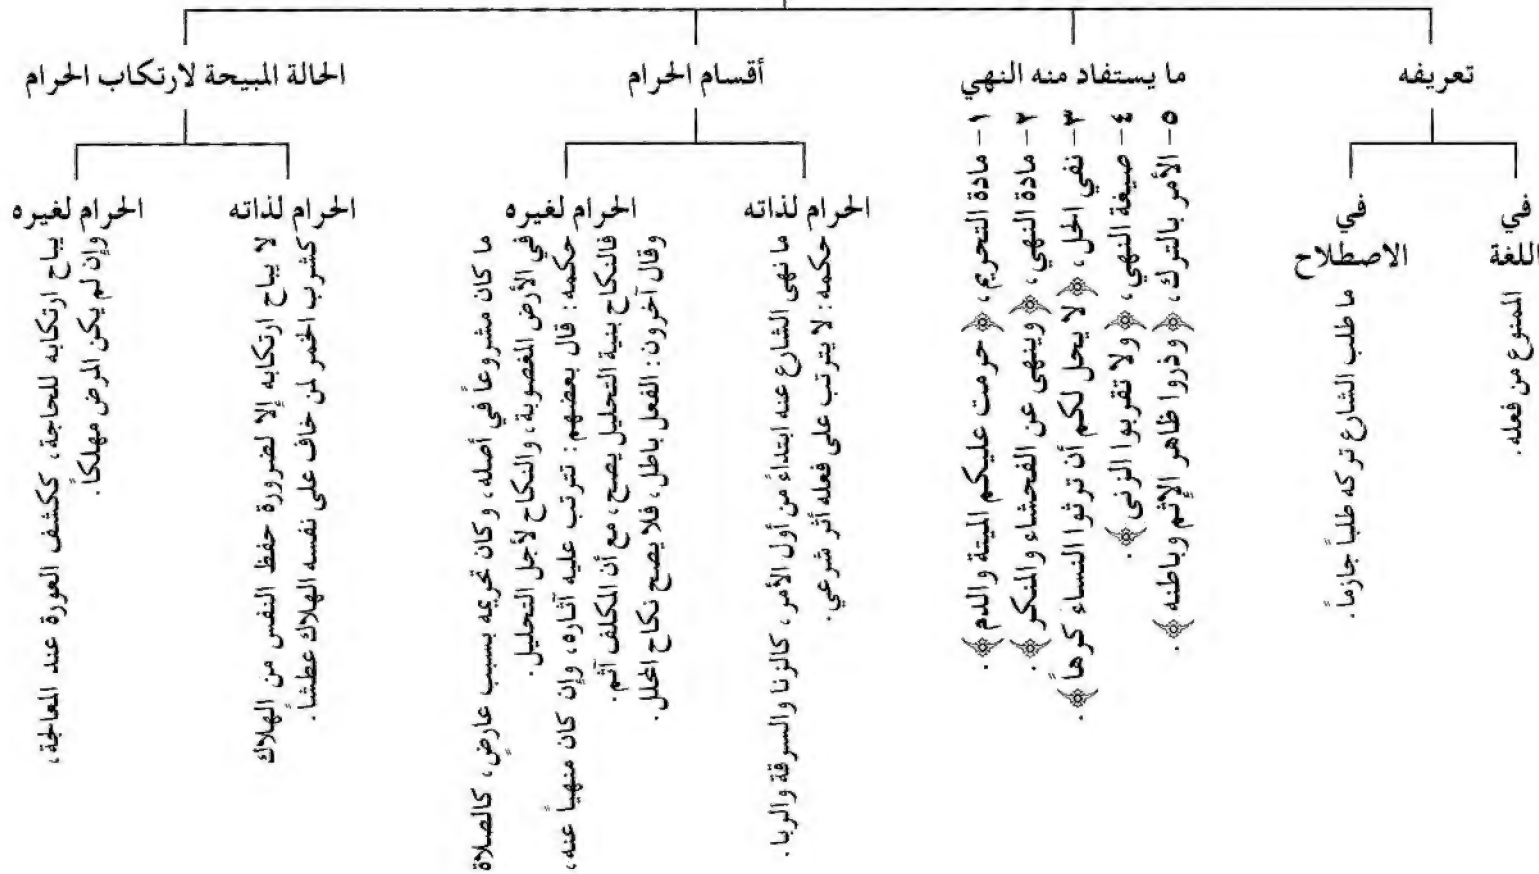 تعريفه
في
اللغة
الممنوع من فعله.
في
الاصطلاح
ما طلب الشارع تركه طلباً جازماً.
ما يستفاد منه النهي
١ - مادة التحريم، ﴿ حرمت عليكم الميتة والدم ﴾.
٢ - مادة النهي، ﴿ وينهى عن الفحشاء والمنكر ﴾.
٣ - نفي الحل، ﴿ لا يحل لكم أن ترثوا النساء كرهاً ﴾.
٤ - صيغة النهي، ﴿ ولا تقربوا الزنى ﴾.
٥ - الأمر بالترك، ﴿ وذروا ظاهر الإثم وباطنه ﴾.
أقسام الحرام
الحرام لذاته
ما نهى الشارع عنه ابتداءً من أول الأمر، كالزنا والسرقة والربا.
حكمه: لا يترتب على فعله أثر شرعي.
الحرام لغيره
ما كان مشروعاً في أصله، وكان تحريمه بسبب عارضٍ، كالصلاة
في الأرض المغصوبة، والنكاح لأجل التحليل.
حكمه: قال بعضهم: تترتب عليه آثاره، وإن كان منهياً عنه،
فالنكاح بنية التحليل يصح، مع أن المكلف آثم.
وقال آخرون: الفعل باطل، فلا يصح نكاح المحلل.
الحالة المبيحة لارتكاب الحرام
الحرام لذاته
لا يباح ارتكابه إلا لضرورة حفظ النفس من الهلاك
كشرب الخمر لمن خاف على نفسه الهلاك عطشاً.
الحرام لغيره
يباح ارتكابه للحاجة، ككشف العورة عند المعالجة،
وإن لم يكن المرض مهلكاً.